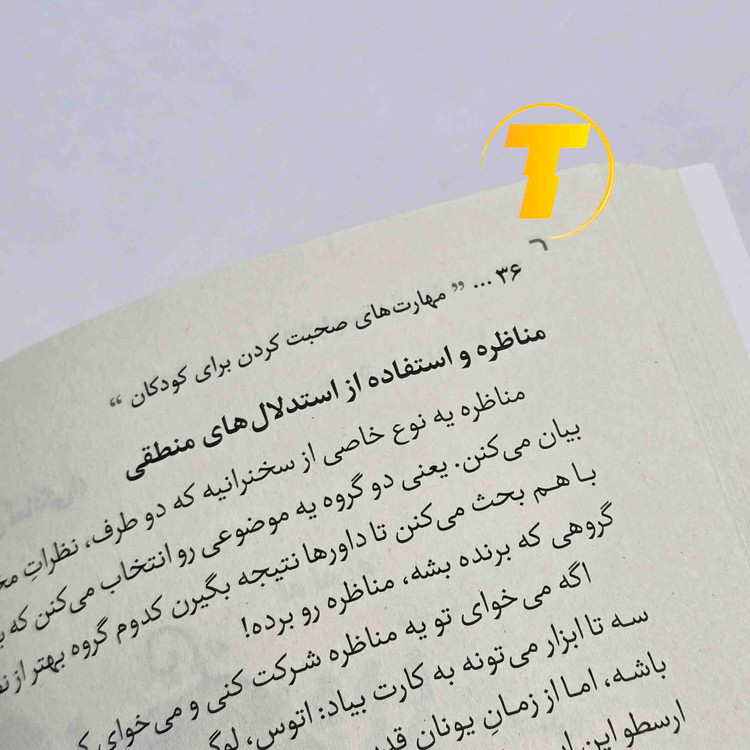 T
۳۶ ... ” مهارت‌های صحبت کردن برای کودکان “
مناظره و استفاده از استدلال‌های منطقی
مناظره یه نوع خاصی از سخنرانیه که دو طرف، نظراتِ
بیان می‌کنن. یعنی دو گروه یه موضوعی رو انتخاب می‌کنن که
با هم بحث می‌کنن تا داورها نتیجه بگیرن کدوم گروه بهتر از
گروهی که برنده بشه، مناظره رو برده!
اگه می‌خوای تو یه مناظره شرکت کنی و می‌خوای
سه تا ابزار می‌تونه به کارت بیاد: اتوس،
باشه، اما از زمانِ یونان
ارسطو این